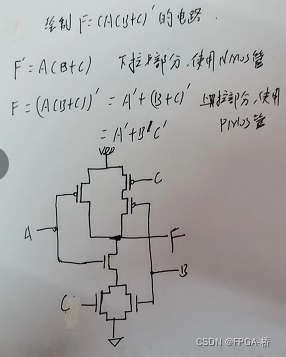 绘制 F=(A(B+C))' 的电路.
F'=A(B+C) 下拉部分,使用NMOS管
F=(A(B+C))'=A'+(B+C)' 上拉部分,使用
=A'+B'C' PMOS管
Vcc
C
A
F
B
C
CSDN @FPGA-桥